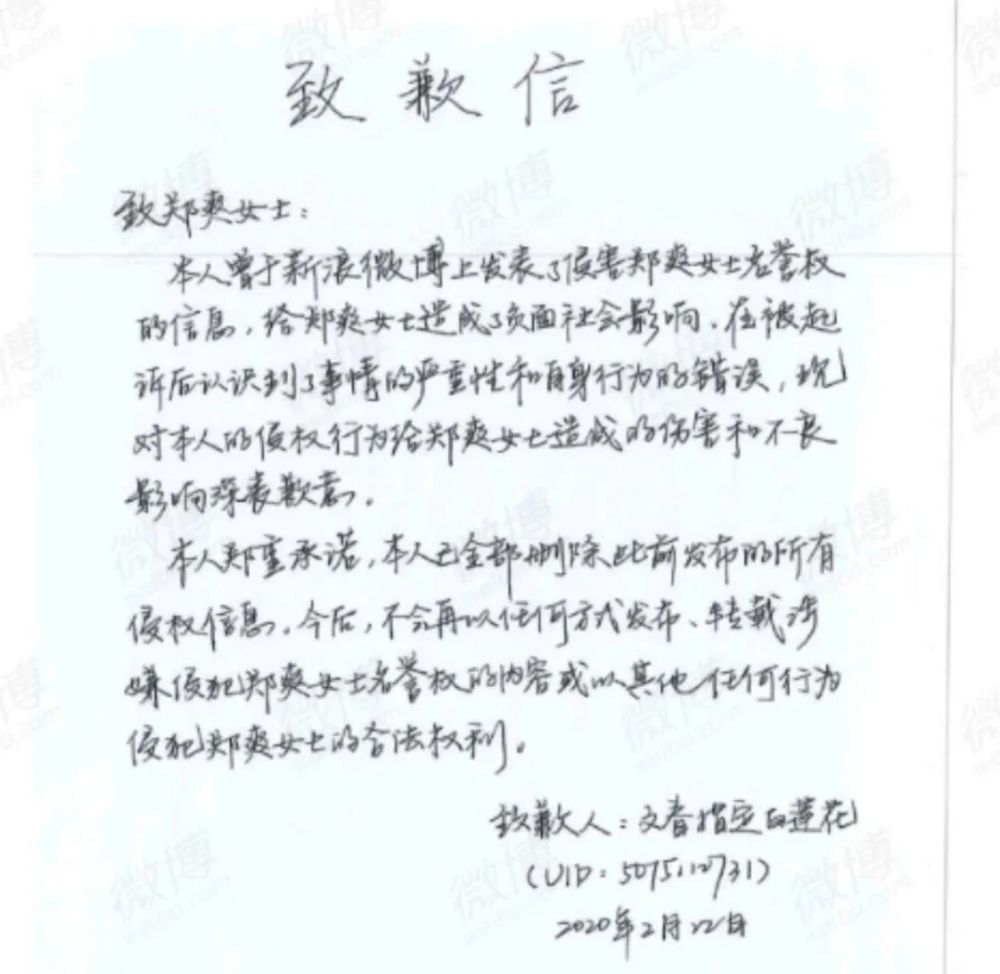 致歉信
致郑爽女士：
本人曾于新浪微博上发表了侵害郑爽女士名誉权
的信息，给郑爽女士造成了负面社会影响。在被起
诉后认识到了事情的严重性和自身行为的错误，现
对本人的侵权行为给郑爽女士造成的伤害和不良
影响深表歉意。
本人郑重承诺，本人已全部删除此前发布的所有
侵权信息。今后，不会再以任何方式发布、转载涉
嫌侵犯郑爽女士名誉权的内容或以其他任何行为
侵犯郑爽女士的合法权利。
致歉人：文春指定白莲花
（UID：5075112731）
2020年2月22日